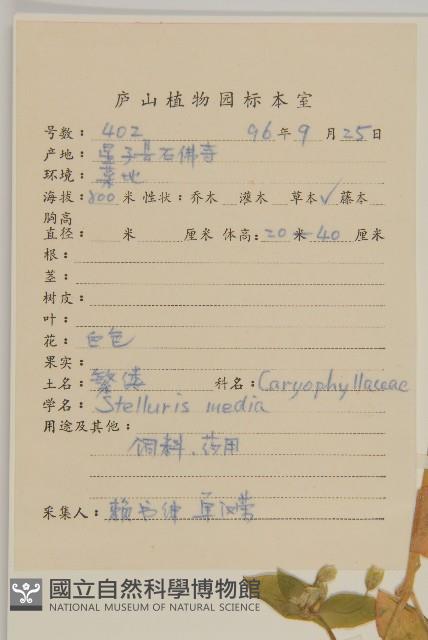 庐山植物园标本室
号数：402 96年9月25日
产地：星子县石佛寺
环境：草地
海拔：800米 性状：乔木 灌木 草本✓ 藤本
胸高
直径： 米 厘米 体高：20米-40厘米
根：
茎：
树皮：
叶：
花：白色
果实：
土名：繁缕 科名：Caryophyllaceae
学名：Stelluris media
用途及其他：
饲料、药用
采集人：赖书绅
國立自然科學博物館
NATIONAL MUSEUM OF NATURAL SCIENCE